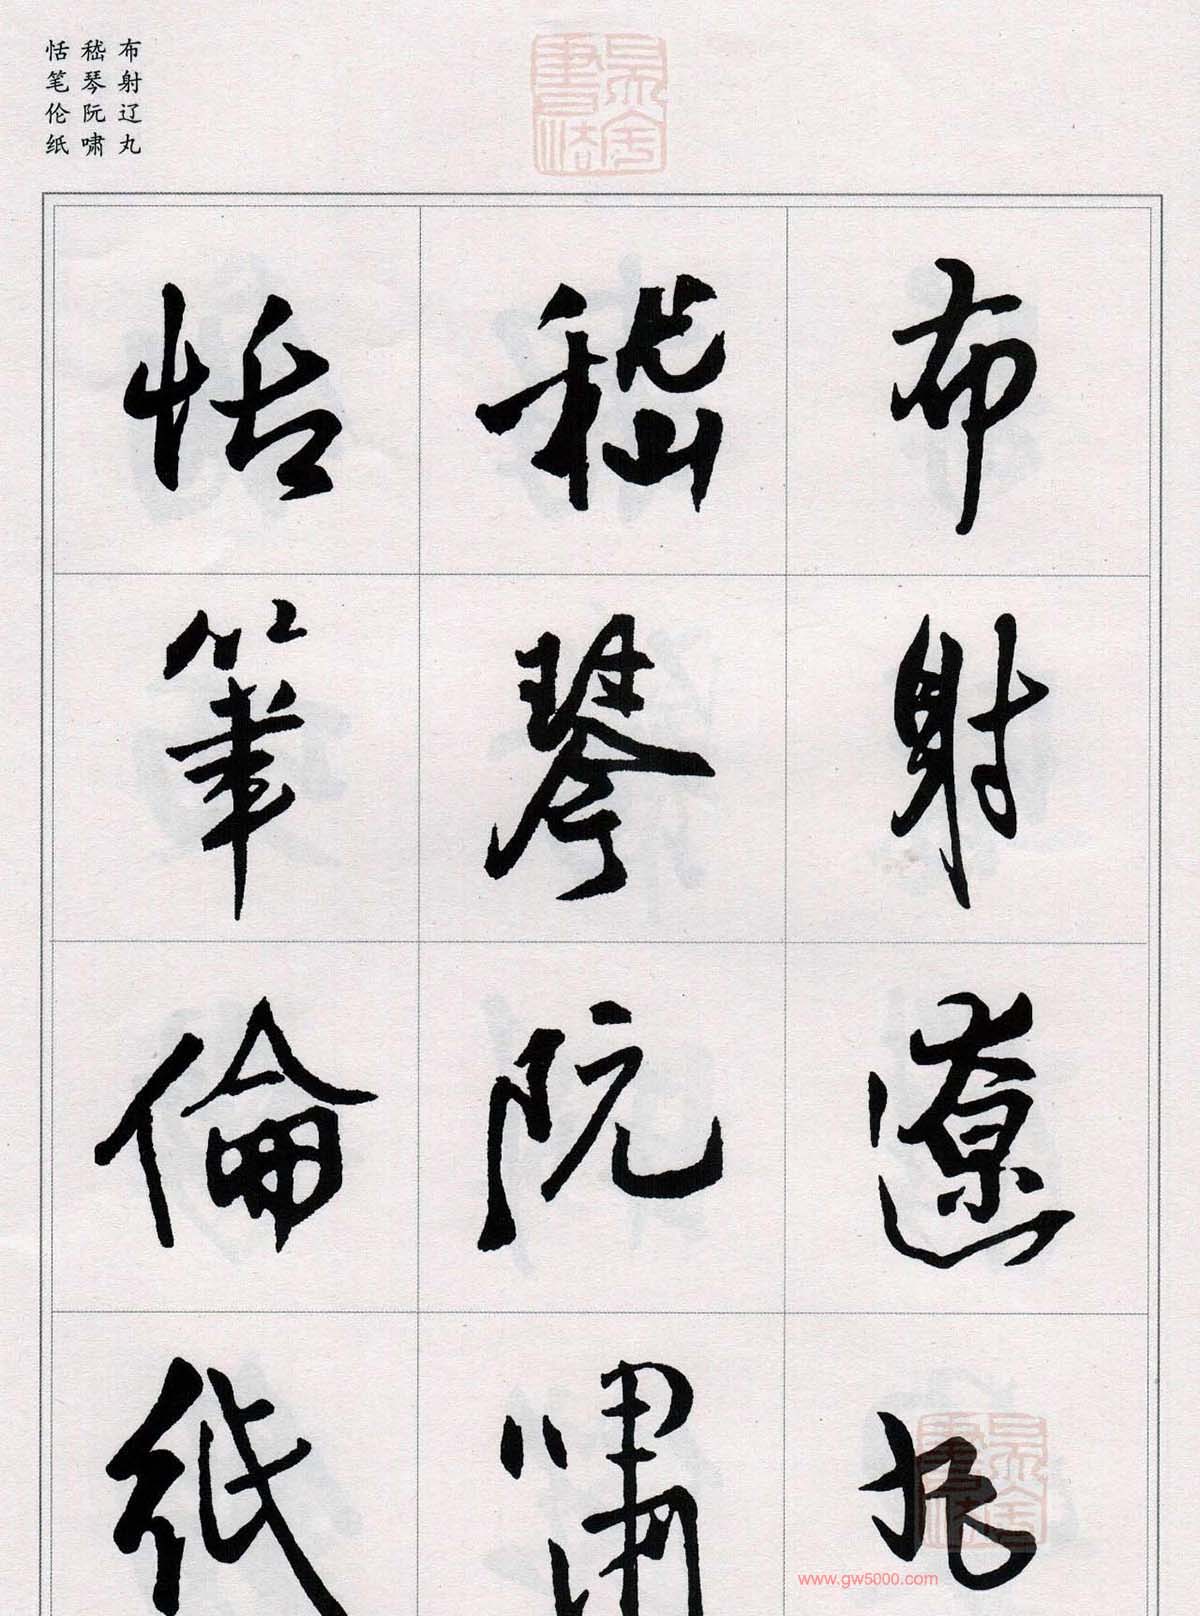 布射辽丸
嵇琴阮啸
恬笔伦纸
布射遼丸
嵇琴阮嘯
恬筆倫紙
www.gw5000.com